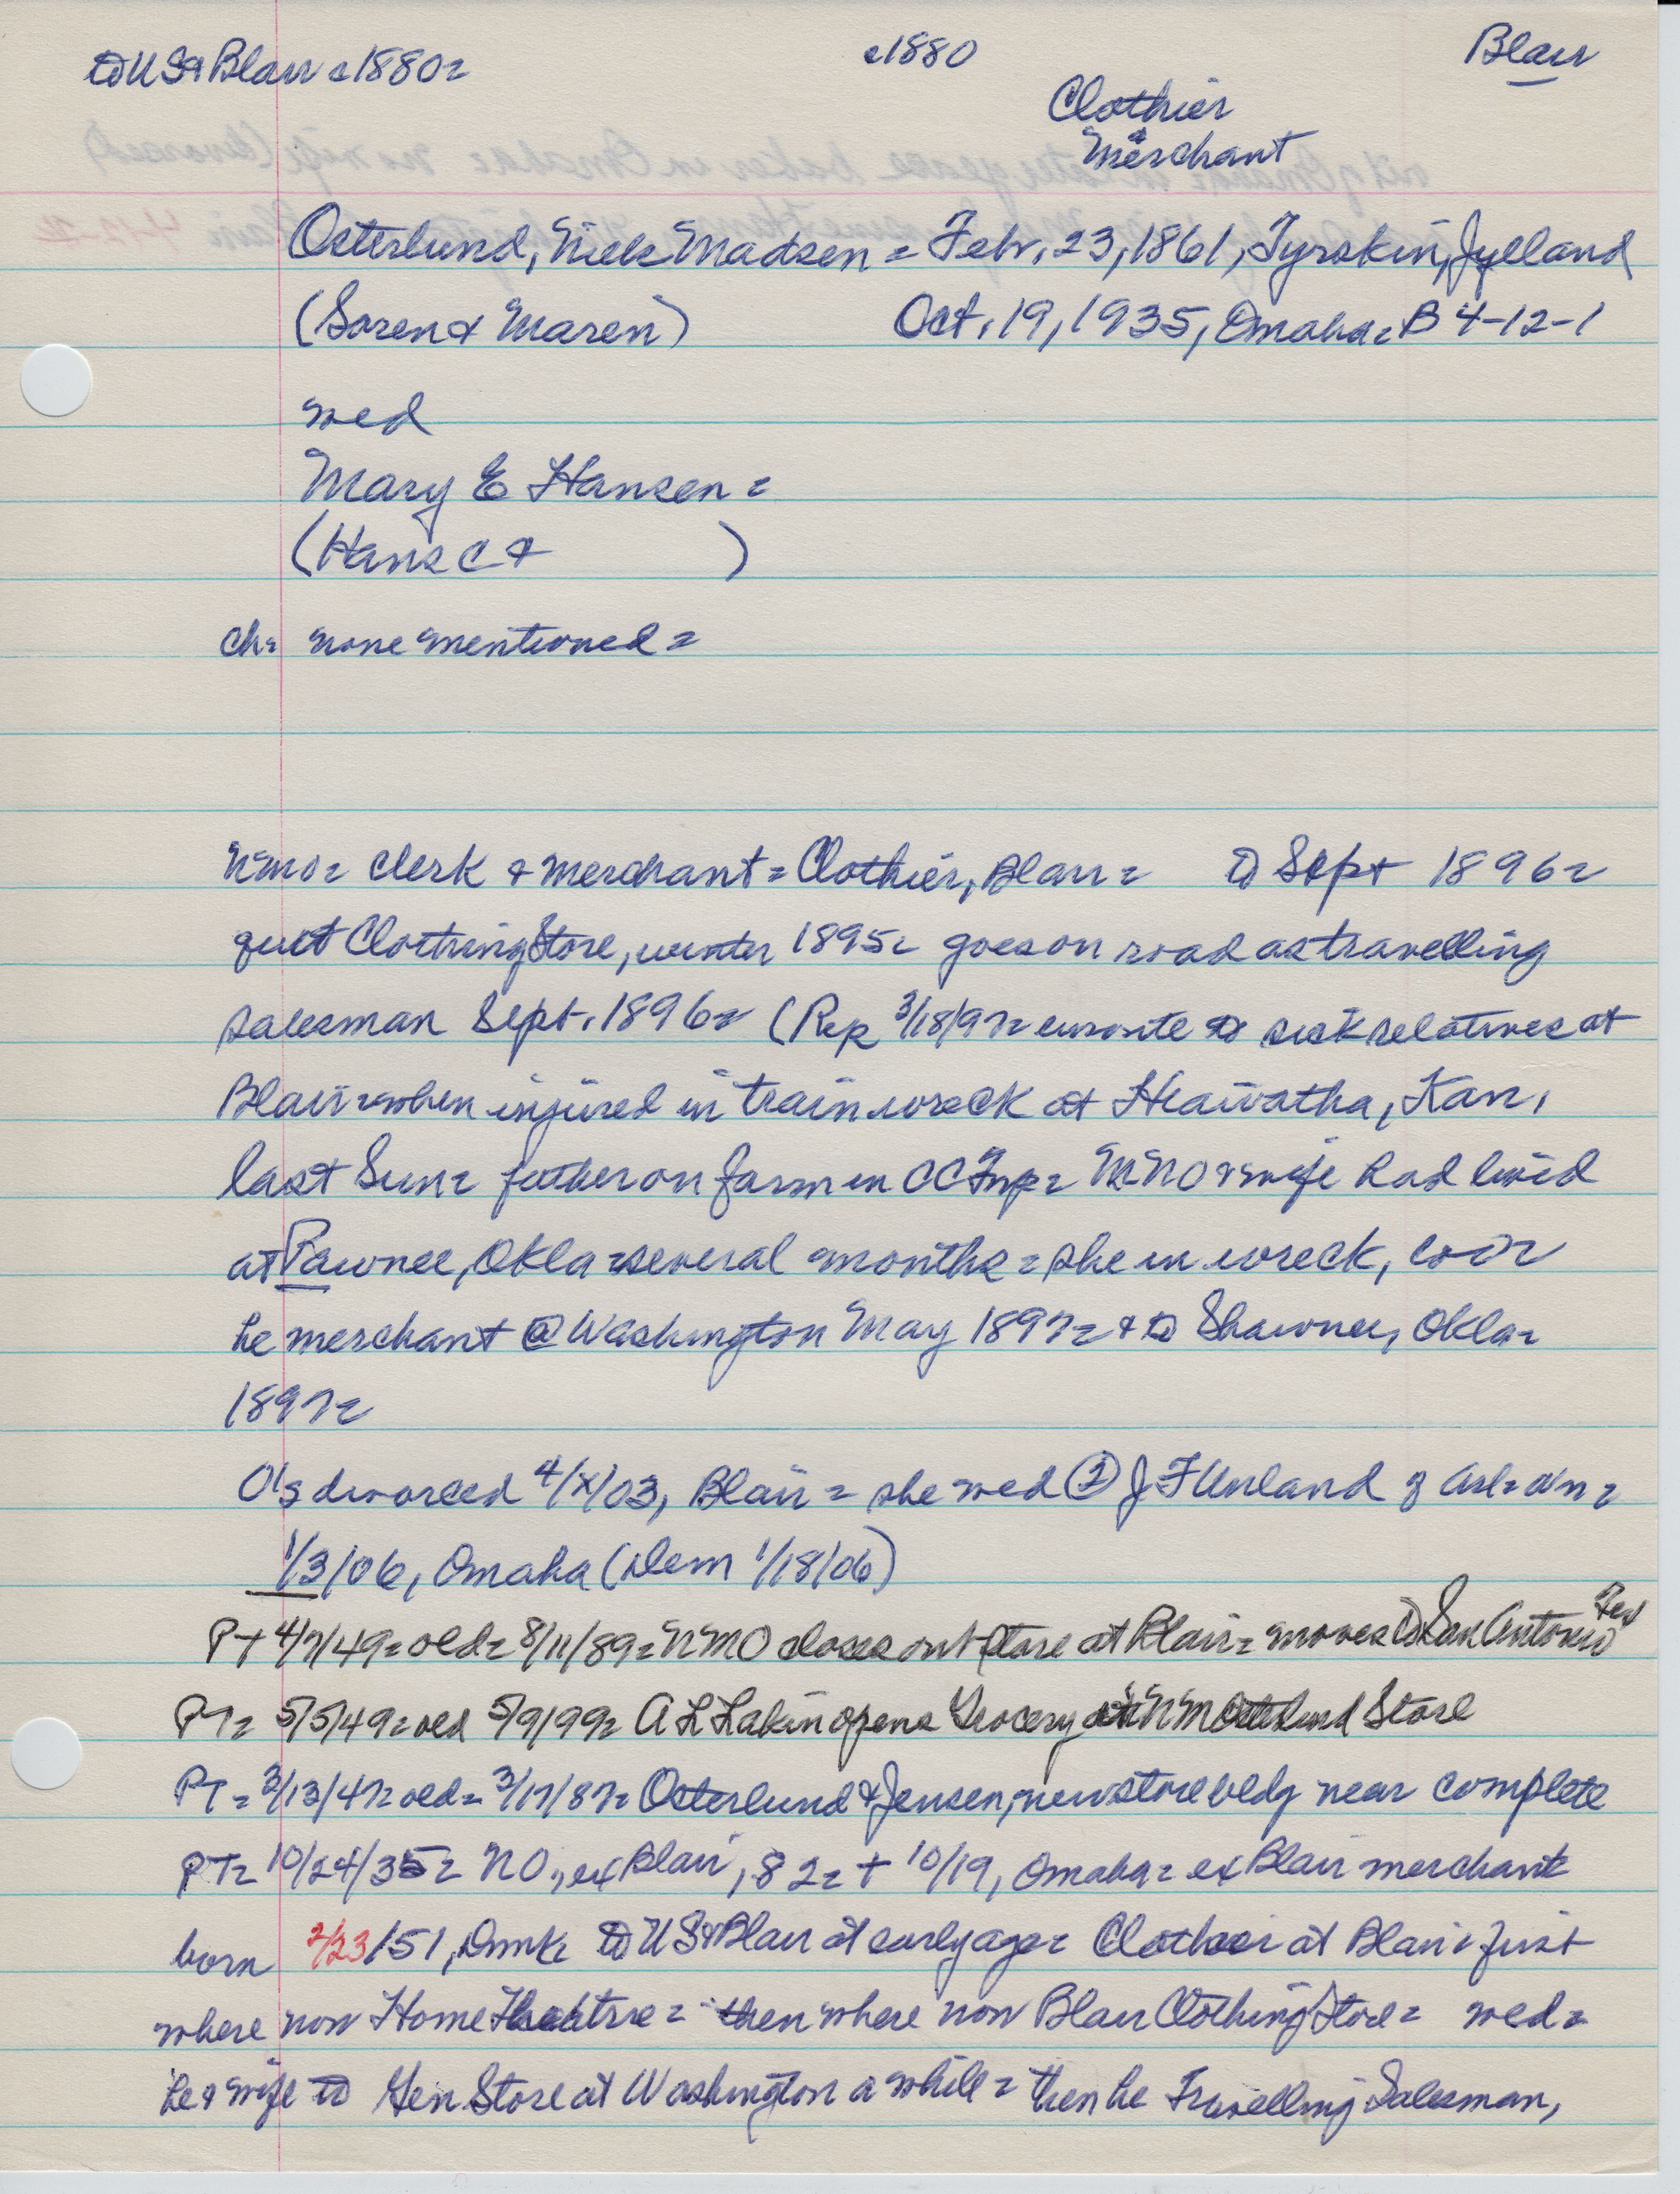 to US & Blair c 1880= c1880 Blair
Clothier
& Merchant
Osterlund, Niels Madsen = Febr. 23, 1861, Tyrskin, Jylland
(Soren & Maren) Oct. 19, 1935, Omaha = B 4-12-1
wed
Mary E Hansen =
(Hans C & )
ch= none mentioned =
NMO= clerk & merchant = Clothier, Blair = to Sept 1896=
quit Clothing Store, winter 1895= goes on road as travelling
salesman Sept. 1896= (Rep 3/18/97= enroute to sick relatives at
Blair = when injured in train wreck at Hiawatha, Kan,
last Sun= father on farm in CC Twp= NMO & wife had lived
at Pawnee, Okla = several months = she in wreck,
he merchant @ Washington May 1897= & to Shawnee, Okla=
1897=
O's divorced 4/x/03, Blair = she wed ② J F Unland of =
1/3/06, Omaha (Dem 1/18/06)
PT 4/7/49= old= 8/11/89= NMO closes out store at Blair= moves to San Antonio Tex
PT= 5/5/49= old 5/9/99= A L Lakin opens Grocery NM Osterlund Store
PT= 3/13/47= old= 3/17/87= Osterlund & Jensen, new store bldg near complete
PT= 10/24/35= NO., ex Blair, 82= + 10/19, Omaha= ex Blair merchant
born 2/23/51, Dmk= to US & Blair at early age= Clothier at Blair= first
where now Home Theatre = then where now Blair Clothing Store = wed=
he & wife to Gen Store at Washington a while = then he Travelling Salesman,